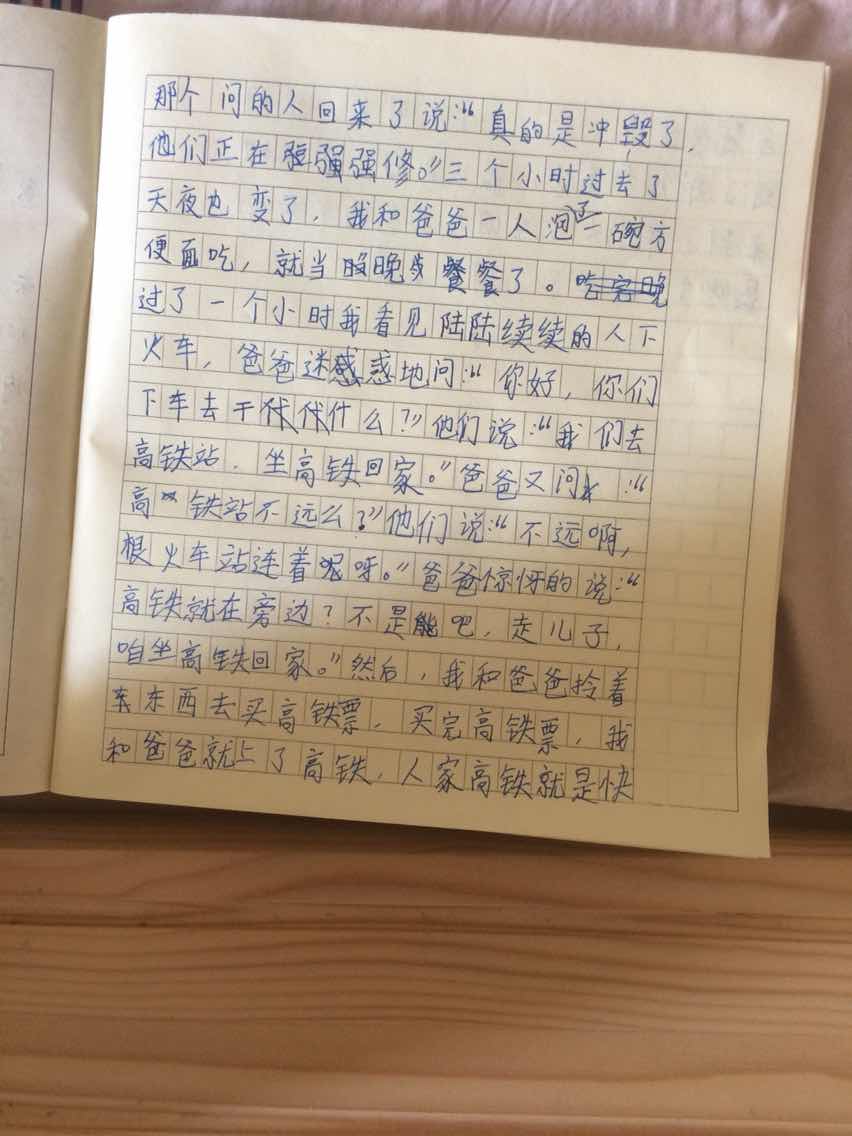 那个问的人回来了说:“真的是冲毁了,
他们正在强强修。”三个小时过去了
天夜也变了,我和爸爸一人泡了一碗方
便面吃,就当晚餐餐了。
过了一个小时我看见陆陆续续的人下
火车,爸爸迷惑惑地问:“你好,你们
下车去干什么?”他们说:“我们去
高铁站,坐高铁回家。”爸爸又问:“
高铁站不远么?”他们说:“不远啊,
根火车站连着呢呀。”爸爸惊伢的说:“
高铁就在旁边?不是能吧,走儿子,
咱坐高铁回家。”然后,我和爸爸拎着
东西去买高铁票,买完高铁票,我
和爸爸就上了高铁,人家高铁就是快